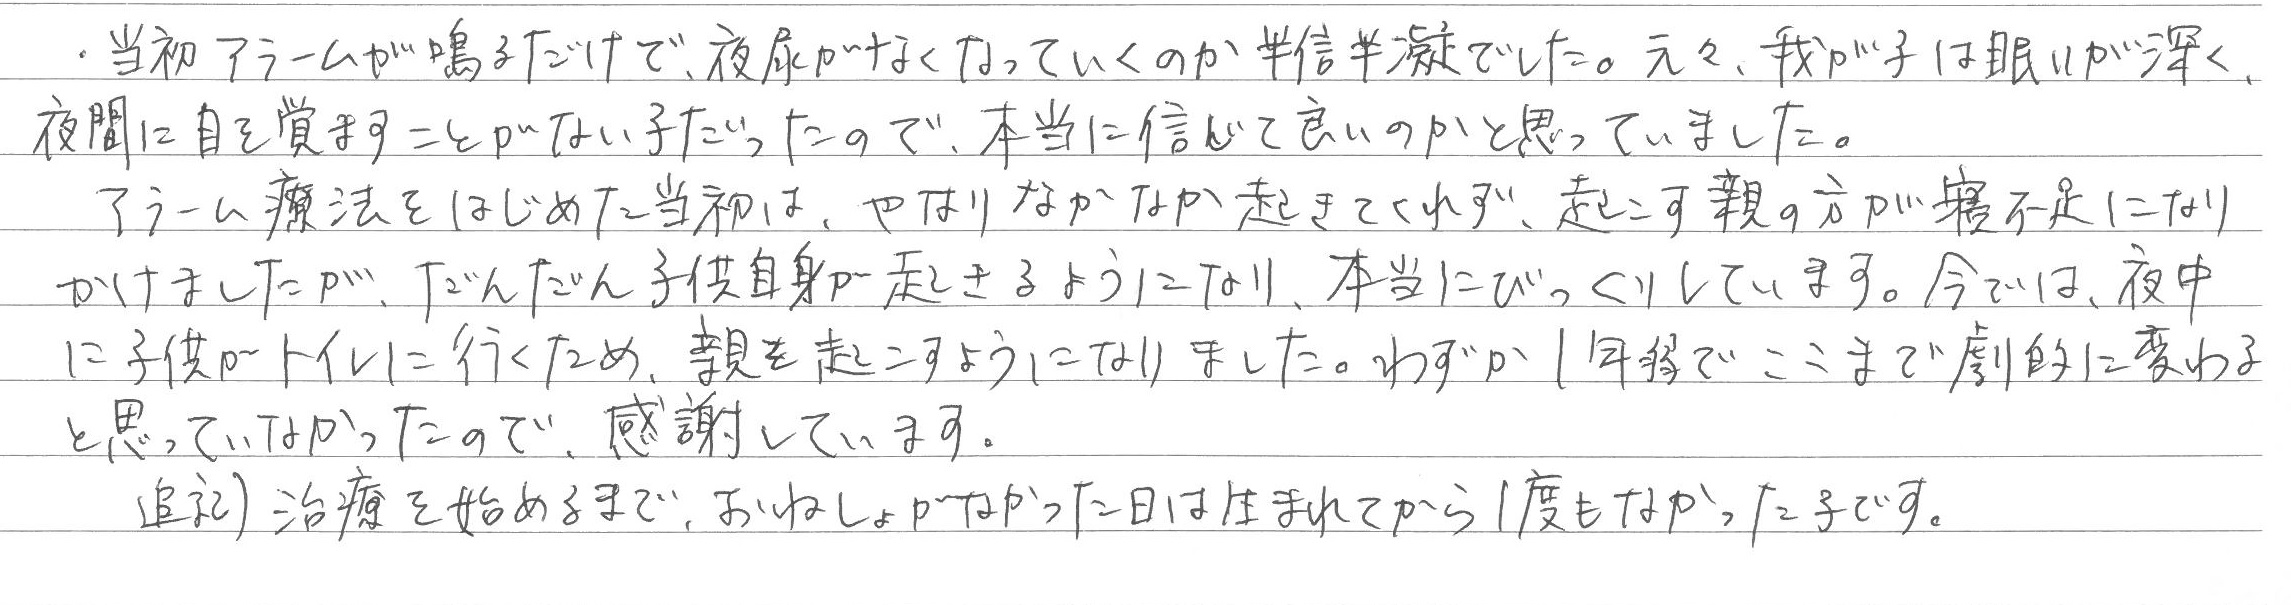 ・当初アラームが鳴るだけで、夜尿がなくなっていくのか半信半凝でした。元々、我が子は眠りが深く、
夜間に目を覚ますことがない子だったので、本当に信じて良いのかと思っていました。
アラーム療法をはじめた当初は、やはりなかなか起きてくれず、起こす親の方が寝不足になり
かけましたが、だんだん子供自身が起きるようになり、本当にびっくりしています。今では、夜中
に子供がトイレに行くため、親を起こすようになりました。わずか1年弱でここまで劇的に変わる
と思っていなかったので、感謝しています。
追記)治療を始めるまで、おねしょがなかった日は生まれてから1度もなかった子です。